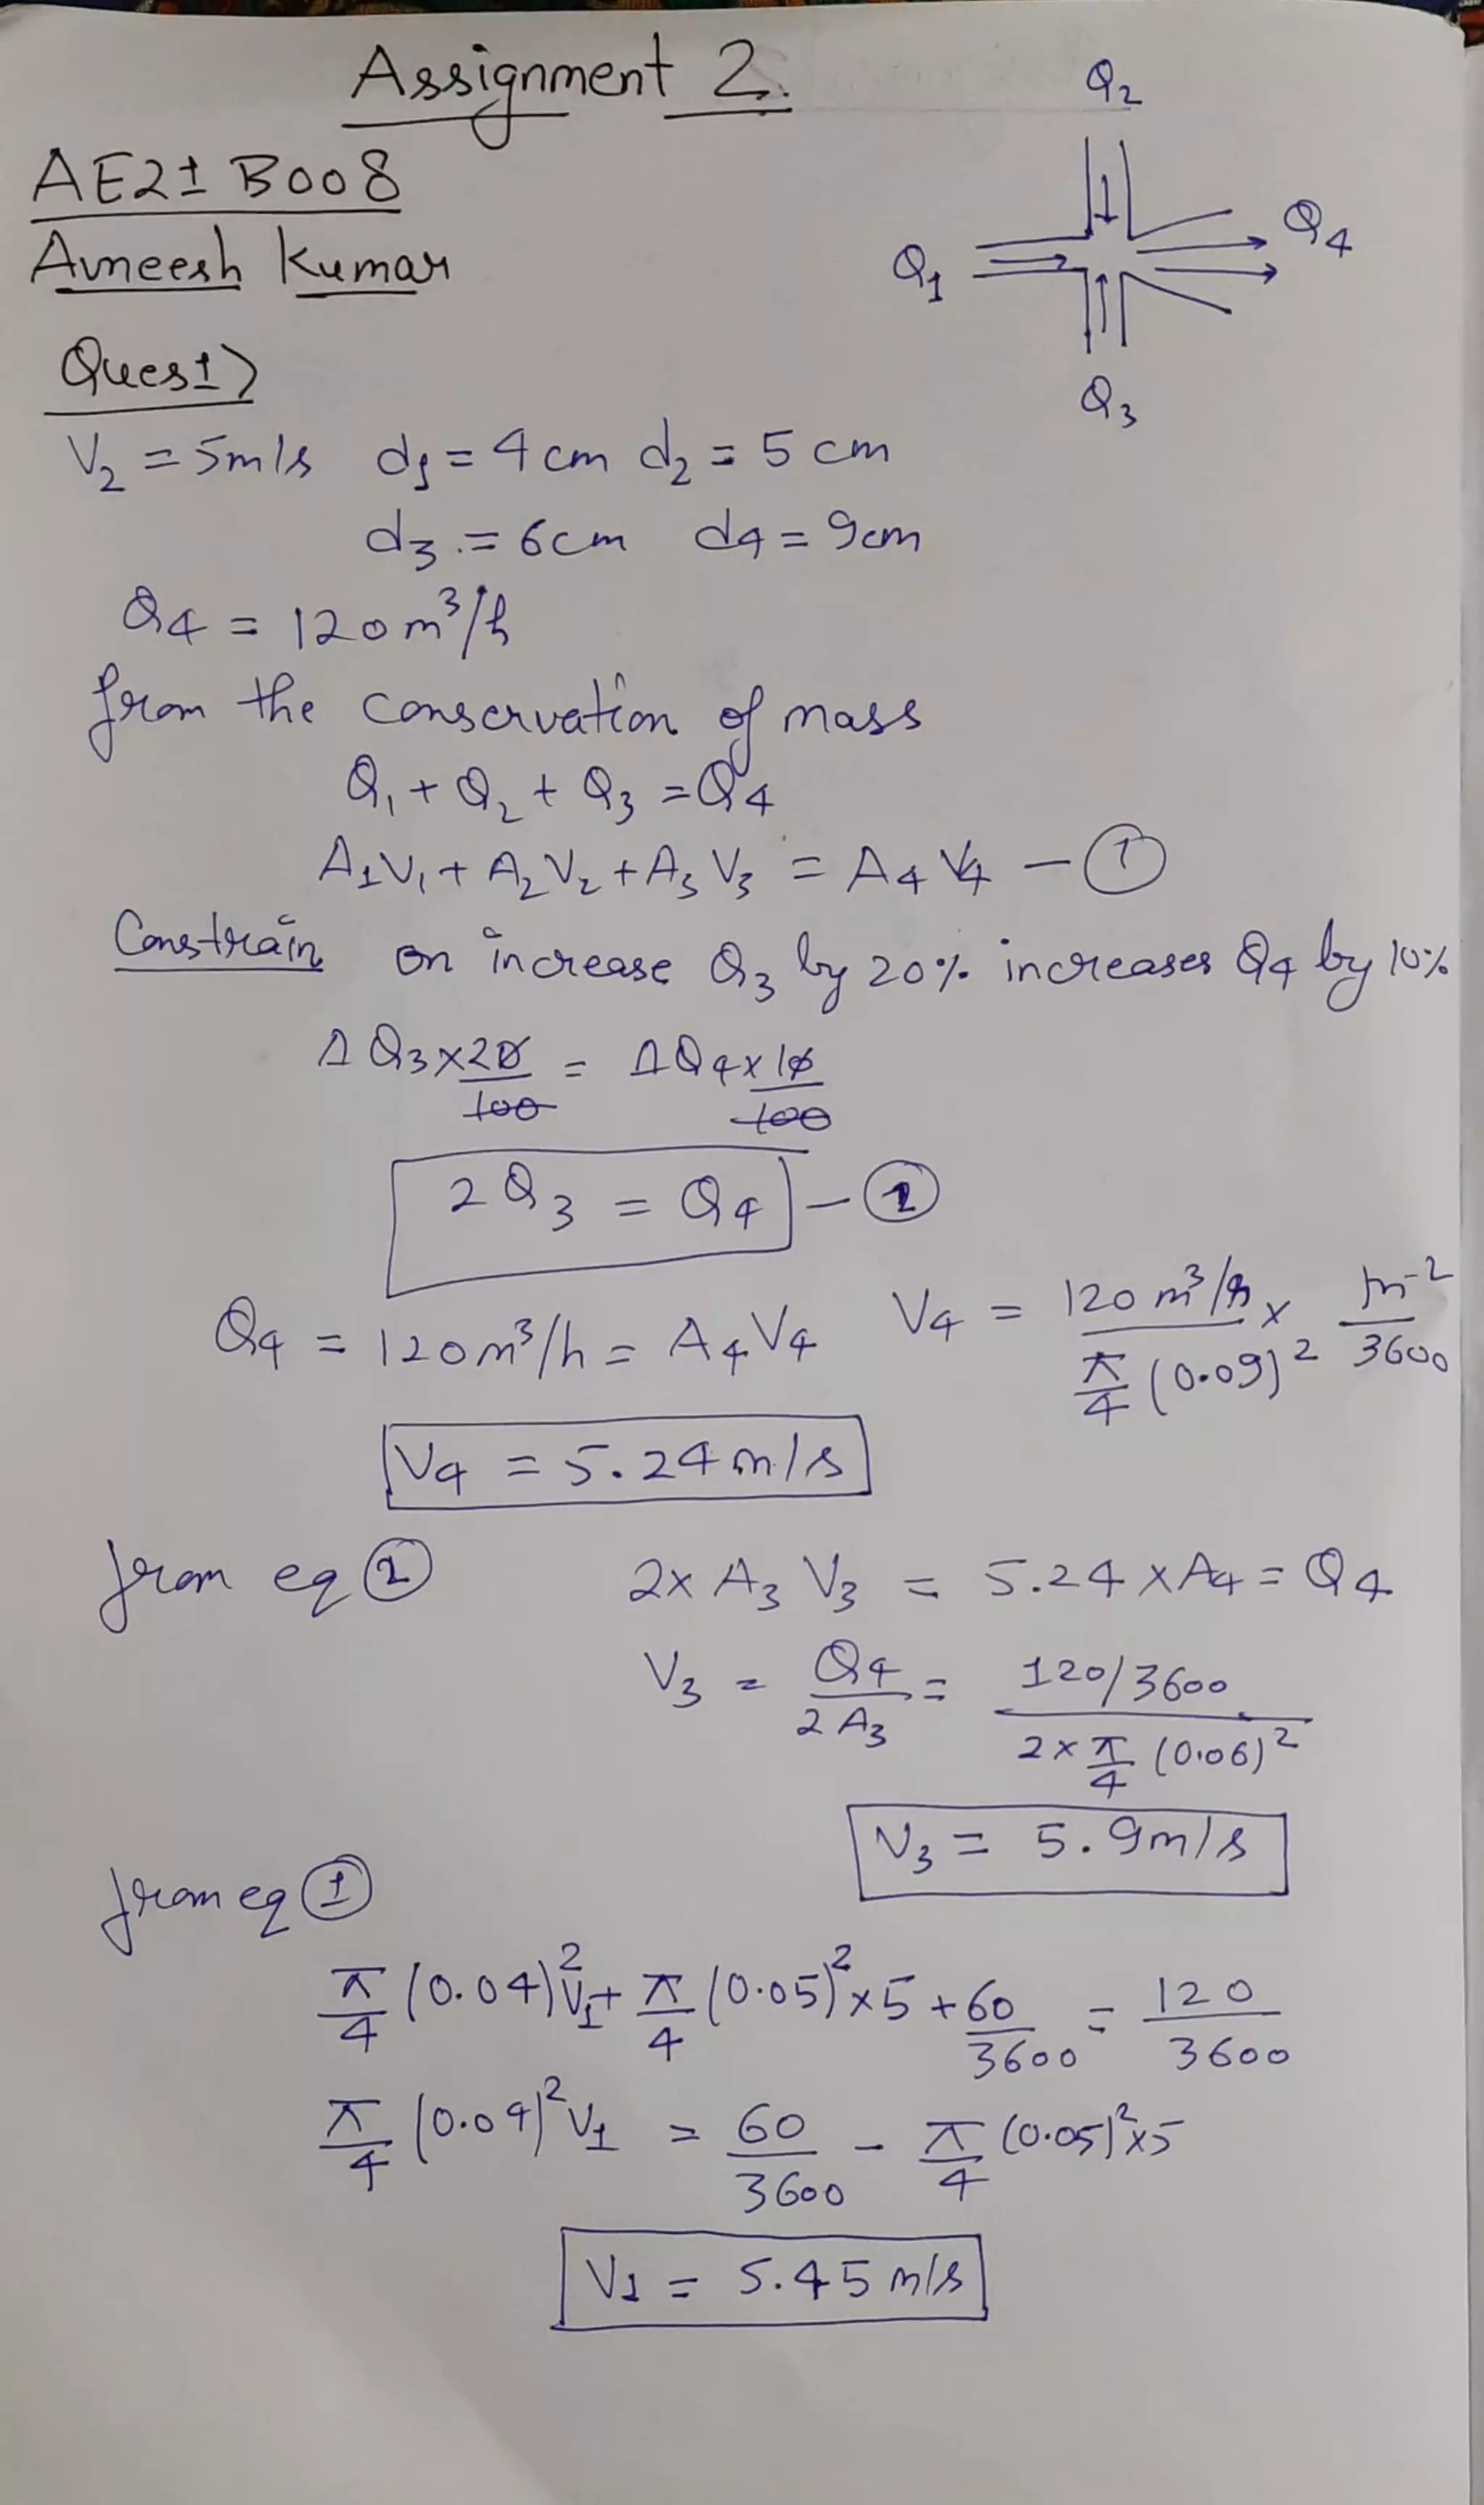 Assignment 2.
AE21B008
Avneesh Kumar
Q2
Q1
Q4
Q3
Ques1)
V2 = 5m/s d1 = 4cm d2 = 5cm
d3 = 6cm d4 = 9cm
Q4 = 120m³/h
from the conservation of mass
Q1 + Q2 + Q3 = Q4
A1V1 + A2V2 + A3V3 = A4V4 - ①
Constrain on increase Q3 by 20% increases Q4 by 10%
Δ Q3 × 20/100 = Δ Q4 × 10/100
2Q3 = Q4 - ②
Q4 = 120m³/h = A4V4 V4 = 120m³/h / π/4 (0.09)² × m⁻²/3600
V4 = 5.24m/s
from eq ② 2× A3 V3 = 5.24 × A4 = Q4
V3 = Q4/2A3 = 120/3600 / 2×π/4 (0.06)²
V3 = 5.9m/s
from eq ①
π/4 (0.04)² V1 + π/4 (0.05)² × 5 + 60/3600 = 120/3600
π/4 (0.04)² V1 = 60/3600 - π/4 (0.05)² × 5
V1 = 5.45 m/s